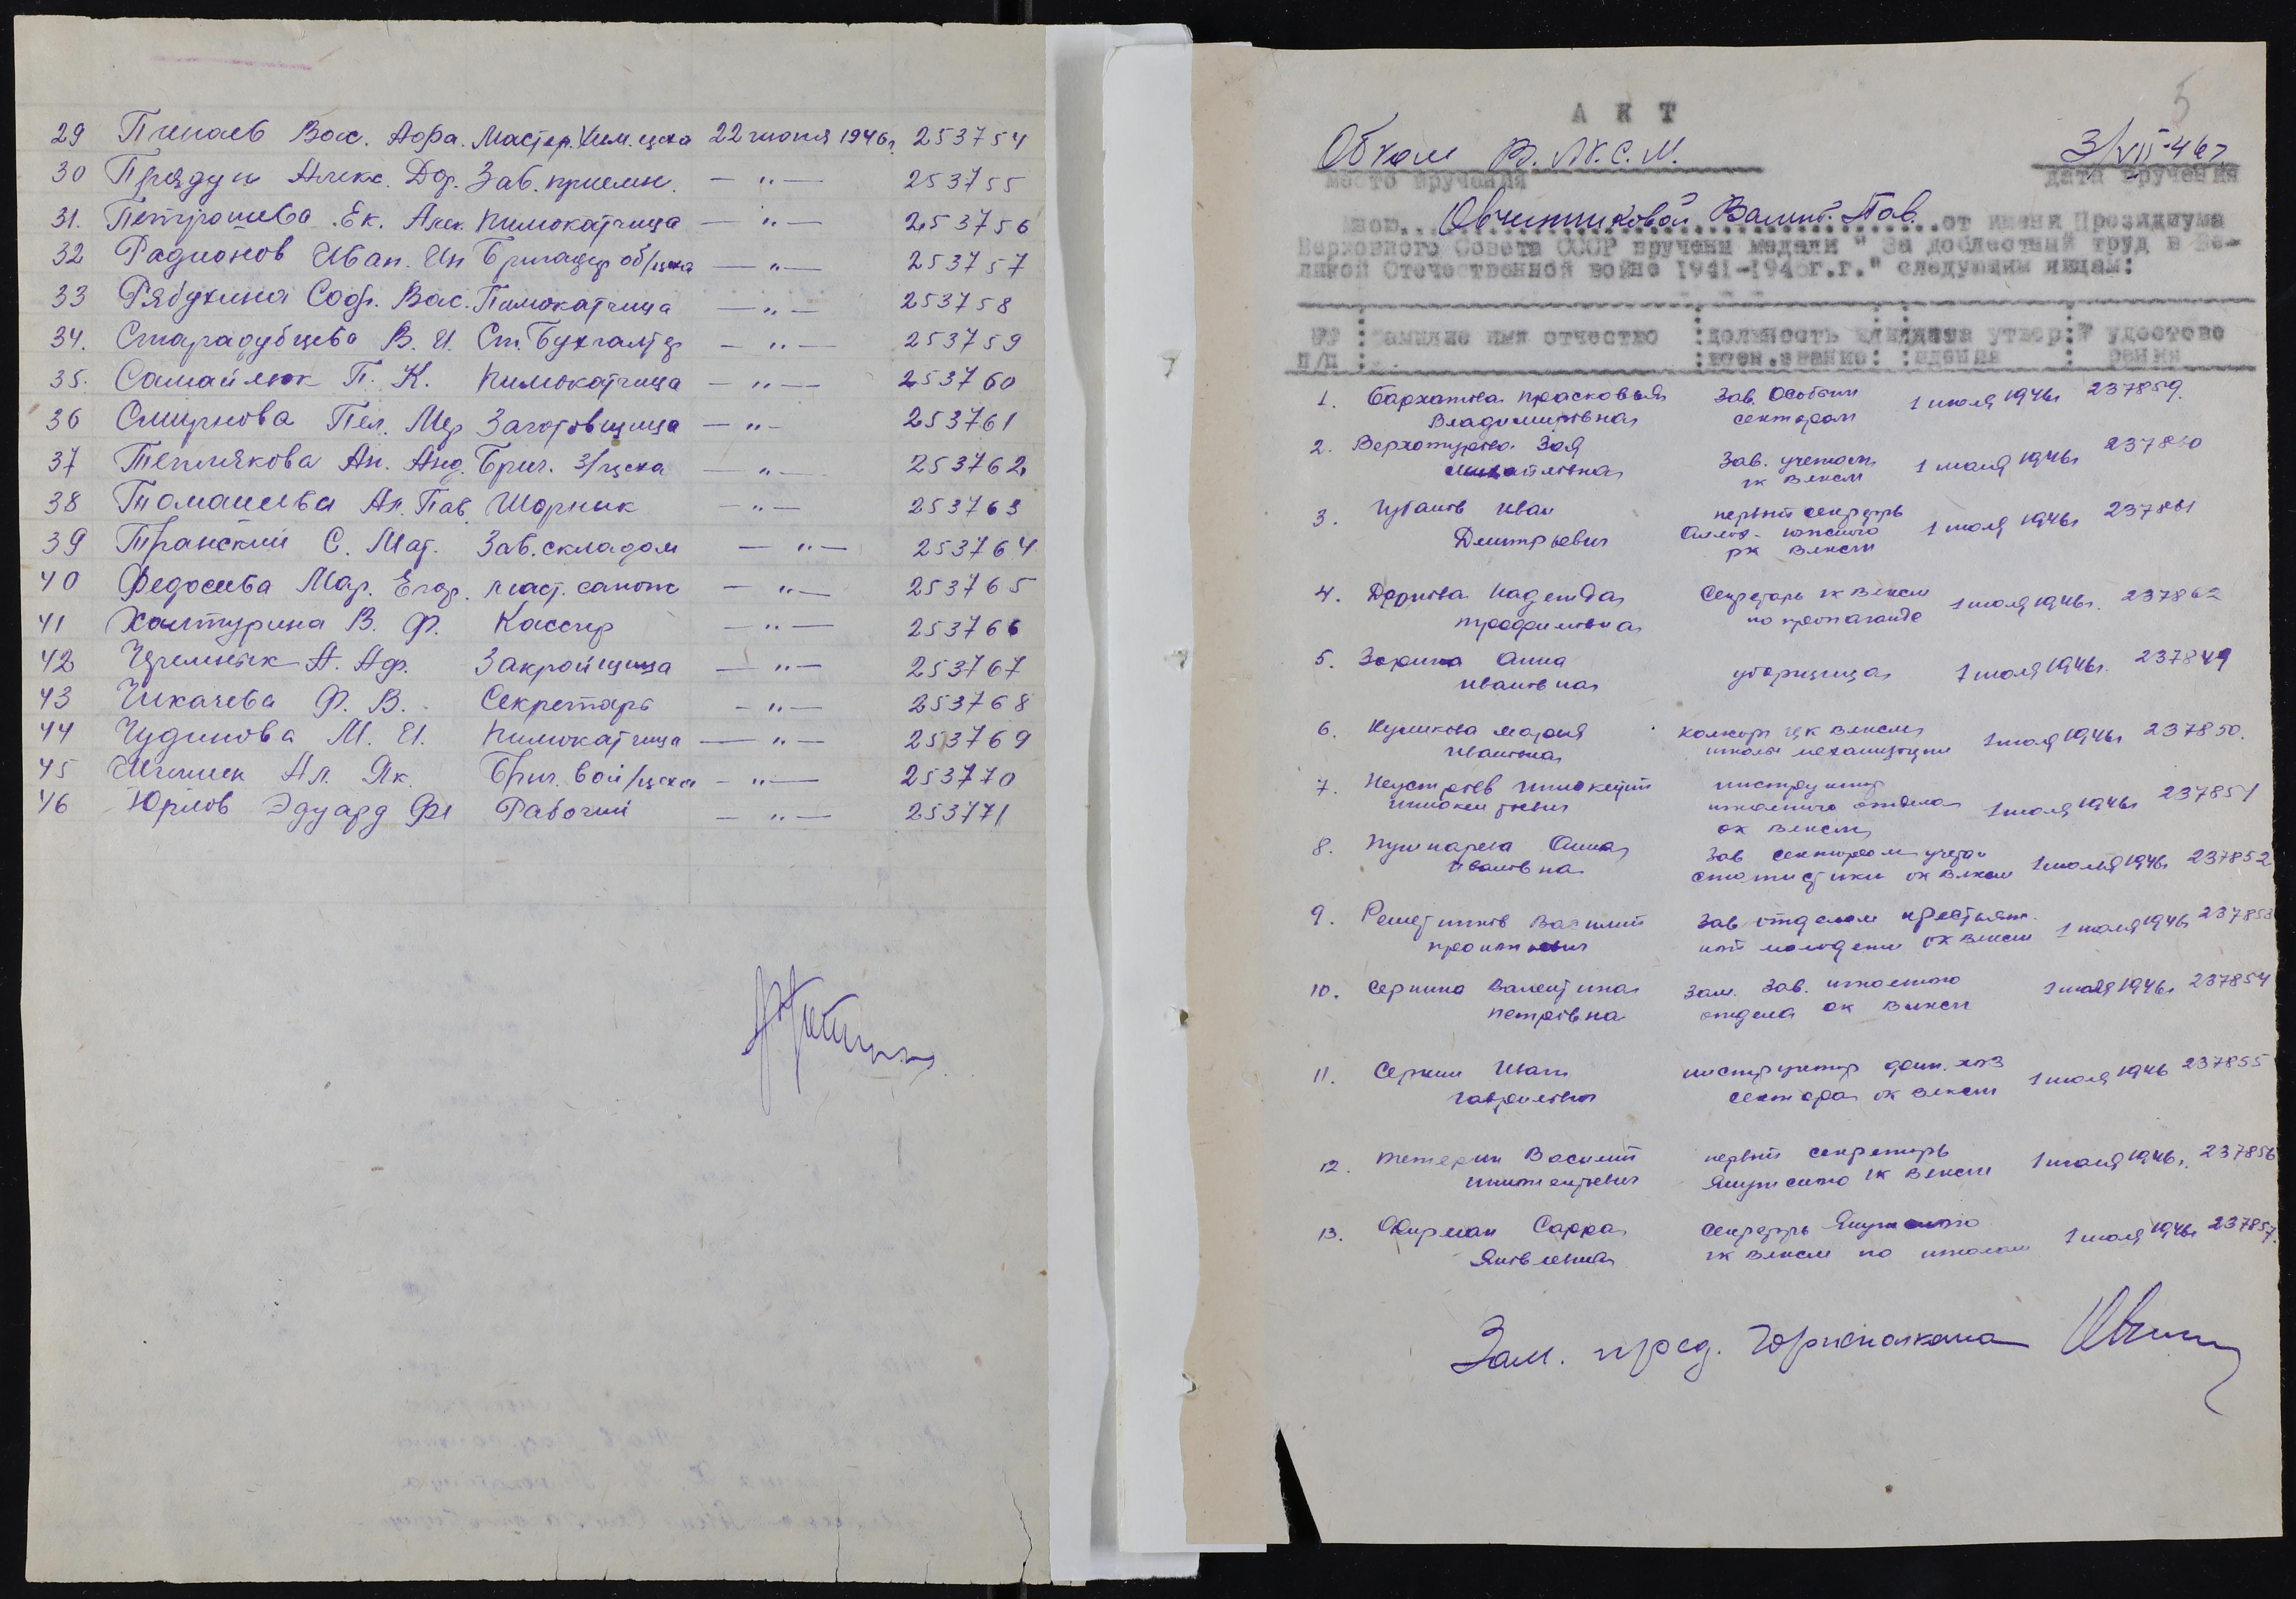 29 Пинаев Вас. Афа. Мастер. Хим. цеха 22 июня 1946г. 253754
30 Прядун Алекс. Дор. Зав. приемн. — " — 253755
31. Петрошева Ек. Алек. Пимокатчица — " — 253756
32 Радионов Иван. Ин Бригадир об/цеха — " — 253757
33 Рябухина Соф. Вас. Пимокатчица — " — 253758
34. Старадубцева В. И. Ст. Бухгалтер — " — 253759
35. Самайлюк П. К. Пимокатчица — " — 253760
36 Смирнова Пел. Мер Заготовщица — " — 253761
37 Теплякова Ан. Анд. Бриг. З/цеха — " — 253762
38 Томашева Ан. Пав. Шорник — " — 253763
39 Транский С. Мат. Зав. складом — " — 253764
40 Федосеева Мар. Егор. маст. сапож — " — 253765
41 Халтурина В. Ф. Кассир — " — 253766
42 А. Аф. Закройщица — " — 253767
43 Чикачева Ф. В. Секретарь — " — 253768
44 Чудинова М. И. Пимокатчица — " — 253769
45 Ал. Як. Бриг. вой/цеха — " — 253770
46 Юрлов Эдуард Фи Рабочий — " — 253771
5
АКТ
Обком В.Л.К.С.М. 3/VII-46г.
место вручения дата вручения
Мною Овчинниковой Валент. Пав. от имени Президиума
Верховного Совета СССР вручены медали "За доблестный труд в Ве-
ликой Отечественной войне 1941-1945г.г." следующим лицам:
№№ : Фамилие имя отчество : должность или : дата утвер : № удостове
п/п : : воен.звание: : ждения : рения
1. Бархатова Прасковья Зав. Особым 1 июля 1946г 237859.
Владимировна сектором
2. Верхотурова Зоя Зав. учетом 1 июля 1946г 237860
Михайловна гк ВЛКСМ
3. Губанов Иван первый секретарь 1 июля 1946г 237861
Дмитриевич рк ВЛКСМ
4. Надежда Секретарь гк ВЛКСМ 1 июля 1946г. 237862
Трофимовна по пропаганде
5. Зорина Анна уборщица 1 июля 1946г. 237849
Ивановна
6. Куликова Мария комсорг ЦК ВЛКСМ 1 июля 1946г 237850.
Ивановна школы механизации
7. Неустроев Иннокентий инструктор 1 июля 1946г 237851
Иннокентьевич школьного отдела
ок ВЛКСМ
8. Пушкарева Анна Зав сектором учета и 1 июля 1946г 237852
Ивановна статистики ок ВЛКСМ
9. Решетников Василий Зав отделом крестьян- 1 июля 1946г 237853
Прокопьевич ской молодежи ок ВЛКСМ
10. Серкина Валентина Зам. Зав. школьного 1 июля 1946г 237854
Петровна отдела ок ВЛКСМ
11. Серкин Иван инструктор фин. хоз 1 июля 1946 237855
Гаврилович сектора ок ВЛКСМ
12. Тетерин Василий первый секретарь 1 июля 1946г. 237856
Иннокентьевич Якутского гк ВЛКСМ
13. Фирман Сарра Секретарь Якутского 1 июля 1946г 237857.
Яковлевна гк ВЛКСМ по школам
Зам. пред. Горисполкома